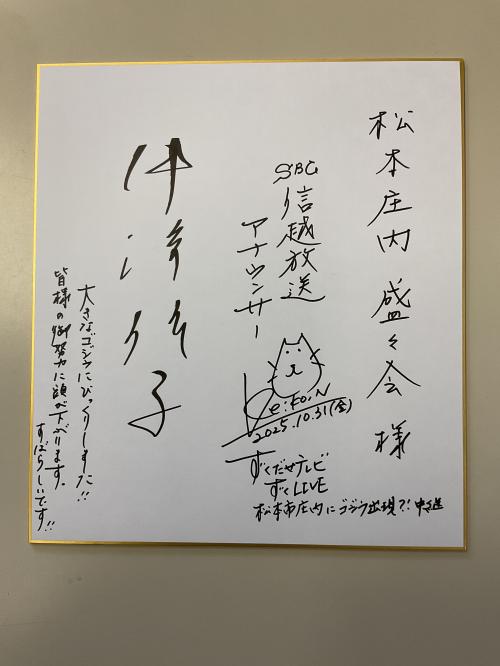 松本庄内 盛々会 様
SBC 信越放送
アナウンサー
2025.10.31(金)
ずくだせテレビ
ずくLIVE
松本市庄内にゴジラ出現?! 中継
大きなゴジラにびっくりしました!!
皆様の御努力に頭が下がります。
すばらしいです!!